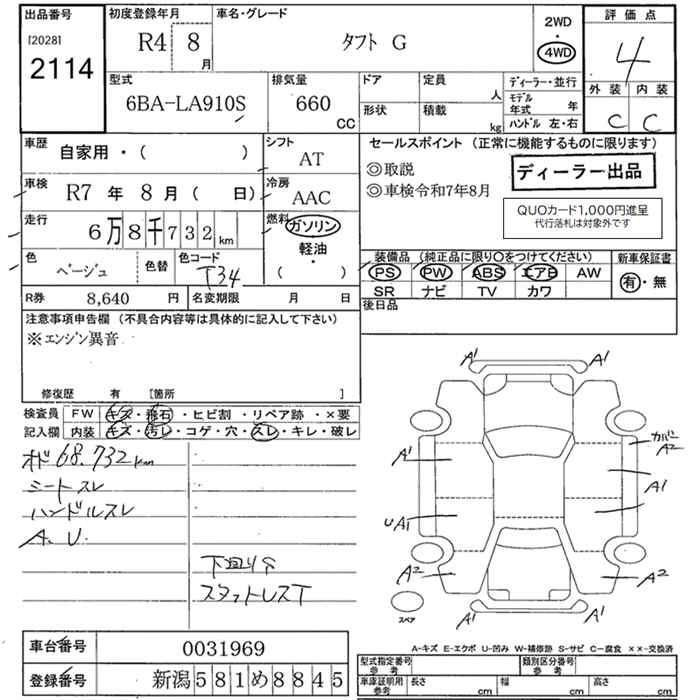 出品番号
[2028]
2114
初度登録年月
R4 8 月
車名・グレード
タフト G
2WD
・
4WD
評価点
4
外装 内装
C C
型式
6BA-LA910S
排気量
660 CC
ドア
定員 人
形状
積載 kg
ディーラー・並行
モデル年式 年
ハンドル 左・右
車歴
自家用・( )
シフト
AT
車検
R7 年 8 月 ( 日)
冷房
AAC
走行
6万8千732km
燃料
ガソリン
軽油・
( )
色
ベージュ
色替
色コード
T34
R券 8,640 円
名変期限 月 日
セールスポイント(正常に機能するものに限ります)
◎取説
◎車検令和7年8月
ディーラー出品
QUOカード1,000円進呈
代行落札は対象外です
装備品(純正品に限り○をつけてください)
PS PW ABS エアB AW
SR ナビ TV カワ
新車保証書
有・無
後日品
注意事項申告欄(不具合内容等は具体的に記入して下さい)
※エンジン異音
修復歴 有 [箇所 ]
検査員記入欄
FW キズ・飛石・ヒビ割・リペア跡・×要
内装 キズ・汚レ・コゲ・穴・スレ・キレ・破レ
オド68.732km
シートスレ
ハンドルスレ
A.U.
下回りS
スタットレスT
A1 A1
A1
カバー A2
A1
UA1
A2 A2
スペア
A-キズ E-エクボ U-凹み W-補修跡 S-サビ C-腐食 ××-交換済
車台番号 0031969
登録番号 新潟581め8845
型式指定番号 参考
類別区分番号 参考
車庫証明用 参考
長さ cm 幅 cm 高さ cm